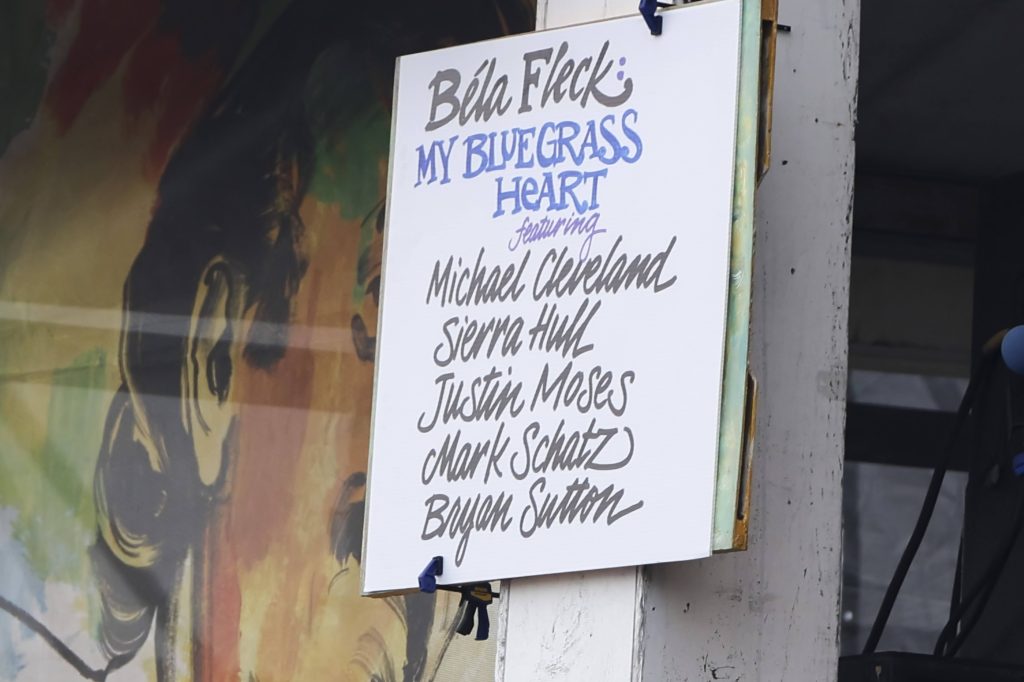 Béla Fleck:
MY BLUEGRASS
HeART
featuring
Michael Cleveland
Sierra Hull
Justin Moses
Mark Schatz
Bryan Sutton